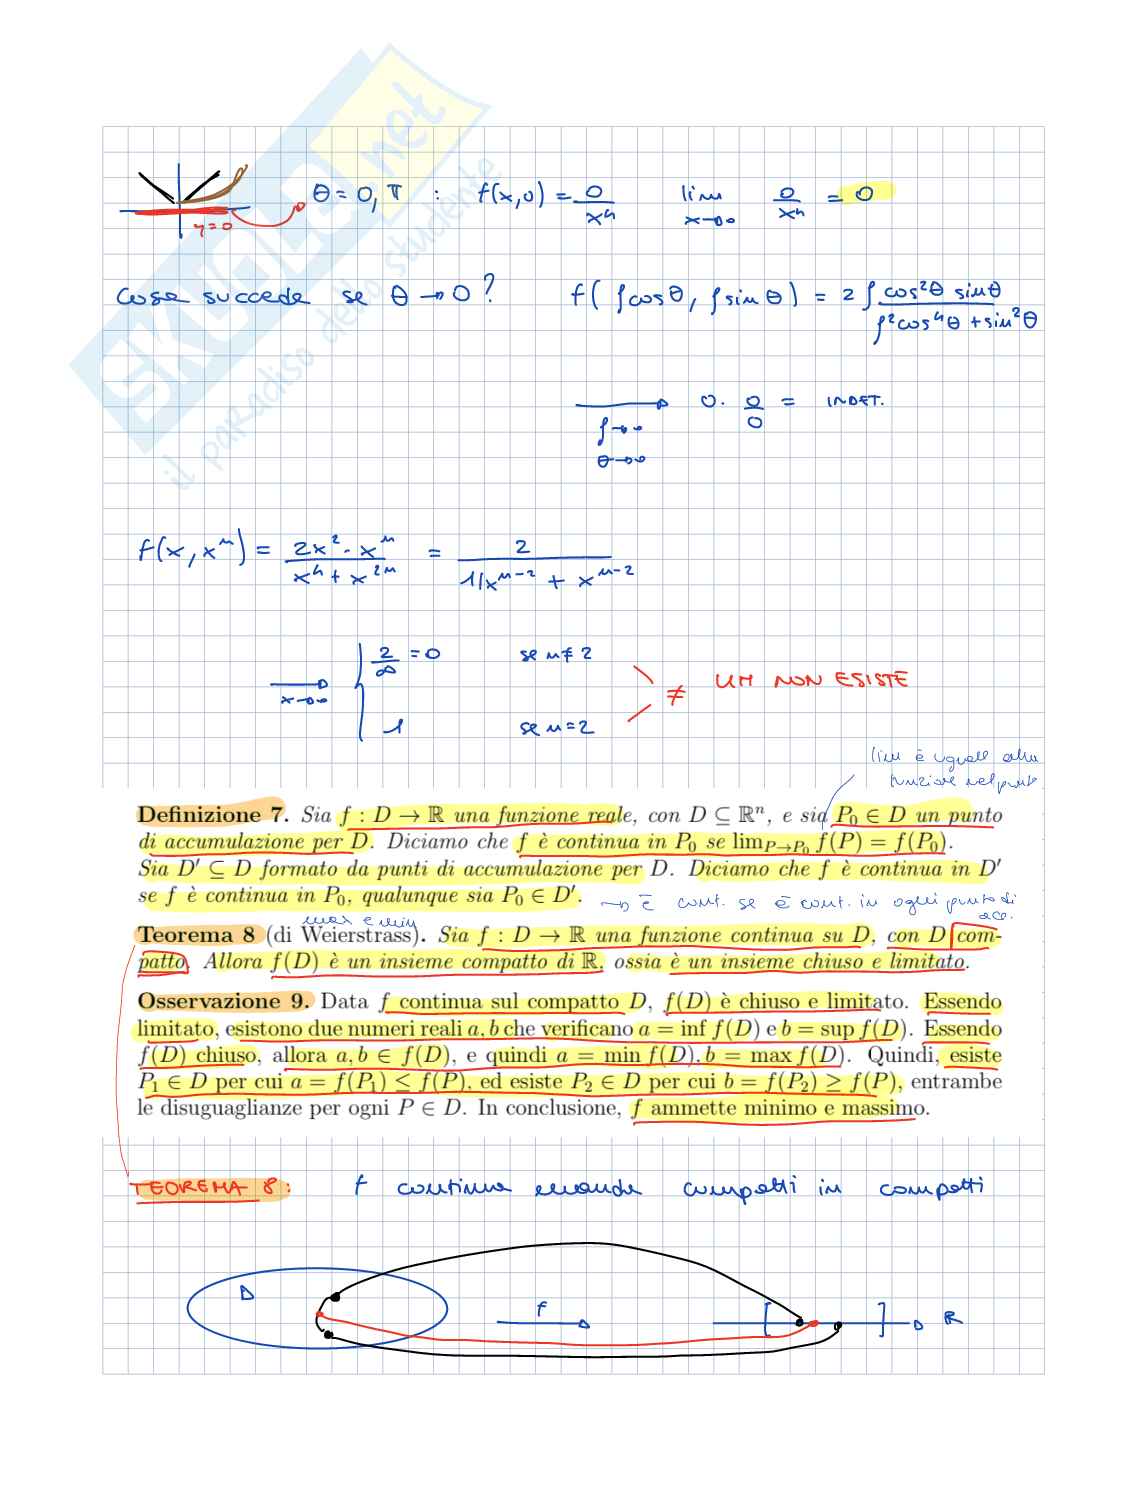 SKUOLA.net
il paradiso dello studente
y=0
θ = 0, π : f(x,0) = 0/x⁴ lim x→0 0/x⁴ = 0
cosa succede se θ → 0? f(ρcosθ, ρsinθ) = 2ρ cos²θ sinθ / ρ²cos⁴θ + sin²θ
→ ρ→0 θ→0 0 · 0/0 = INDET.
f(x, xⁿ) = 2x² · xⁿ / x⁴ + x²ⁿ = 2 / 1/xⁿ⁻² + xⁿ⁻²
→ x→0 { 2/∞ = 0 se n ≠ 2
1 se n = 2
≠ LIM NON ESISTE
lim è uguale alla
funzione nel punto
Definizione 7. Sia f : D → ℝ una funzione reale, con D ⊆ ℝⁿ, e sia P₀ ∈ D un punto
di accumulazione per D. Diciamo che f è continua in P₀ se lim_{P→P₀} f(P) = f(P₀).
Sia D′ ⊆ D formato da punti di accumulazione per D. Diciamo che f è continua in D′
se f è continua in P₀, qualunque sia P₀ ∈ D′.
→ è cont. se è cont. in ogni punto di
acc.
max e min
Teorema 8 (di Weierstrass). Sia f : D → ℝ una funzione continua su D, con D com-
patto. Allora f(D) è un insieme compatto di ℝ, ossia è un insieme chiuso e limitato.
Osservazione 9. Data f continua sul compatto D, f(D) è chiuso e limitato. Essendo
limitato, esistono due numeri reali a, b che verificano a = inf f(D) e b = sup f(D). Essendo
f(D) chiuso, allora a, b ∈ f(D), e quindi a = min f(D), b = max f(D). Quindi, esiste
P₁ ∈ D per cui a = f(P₁) ≤ f(P), ed esiste P₂ ∈ D per cui b = f(P₂) ≥ f(P), entrambe
le disuguaglianze per ogni P ∈ D. In conclusione, f ammette minimo e massimo.
TEOREMA 8: f continua manda compatti in compatti
D f [ ] ℝ